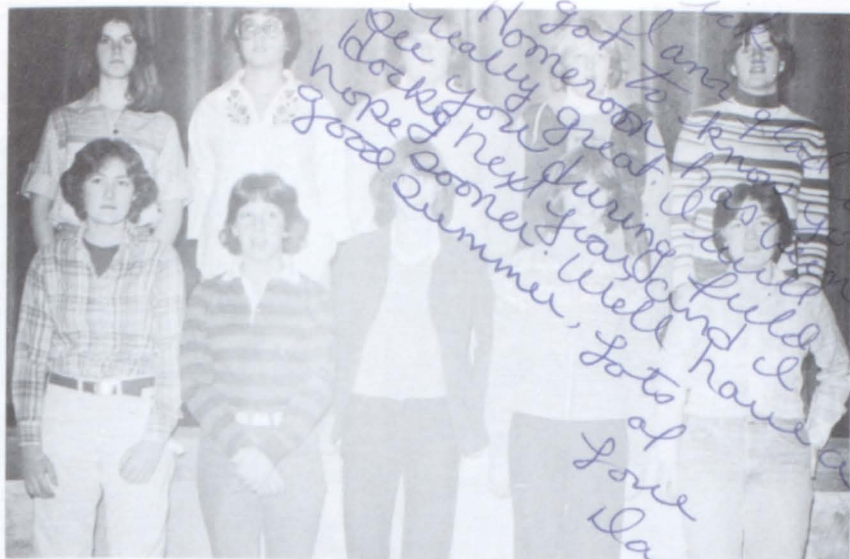 ck
glad
got to know you
Homeroom has been
really great. I will
see you during field
hockey next year and I
hope sooner. Well have a
good summer, Lots
of
Love
Da